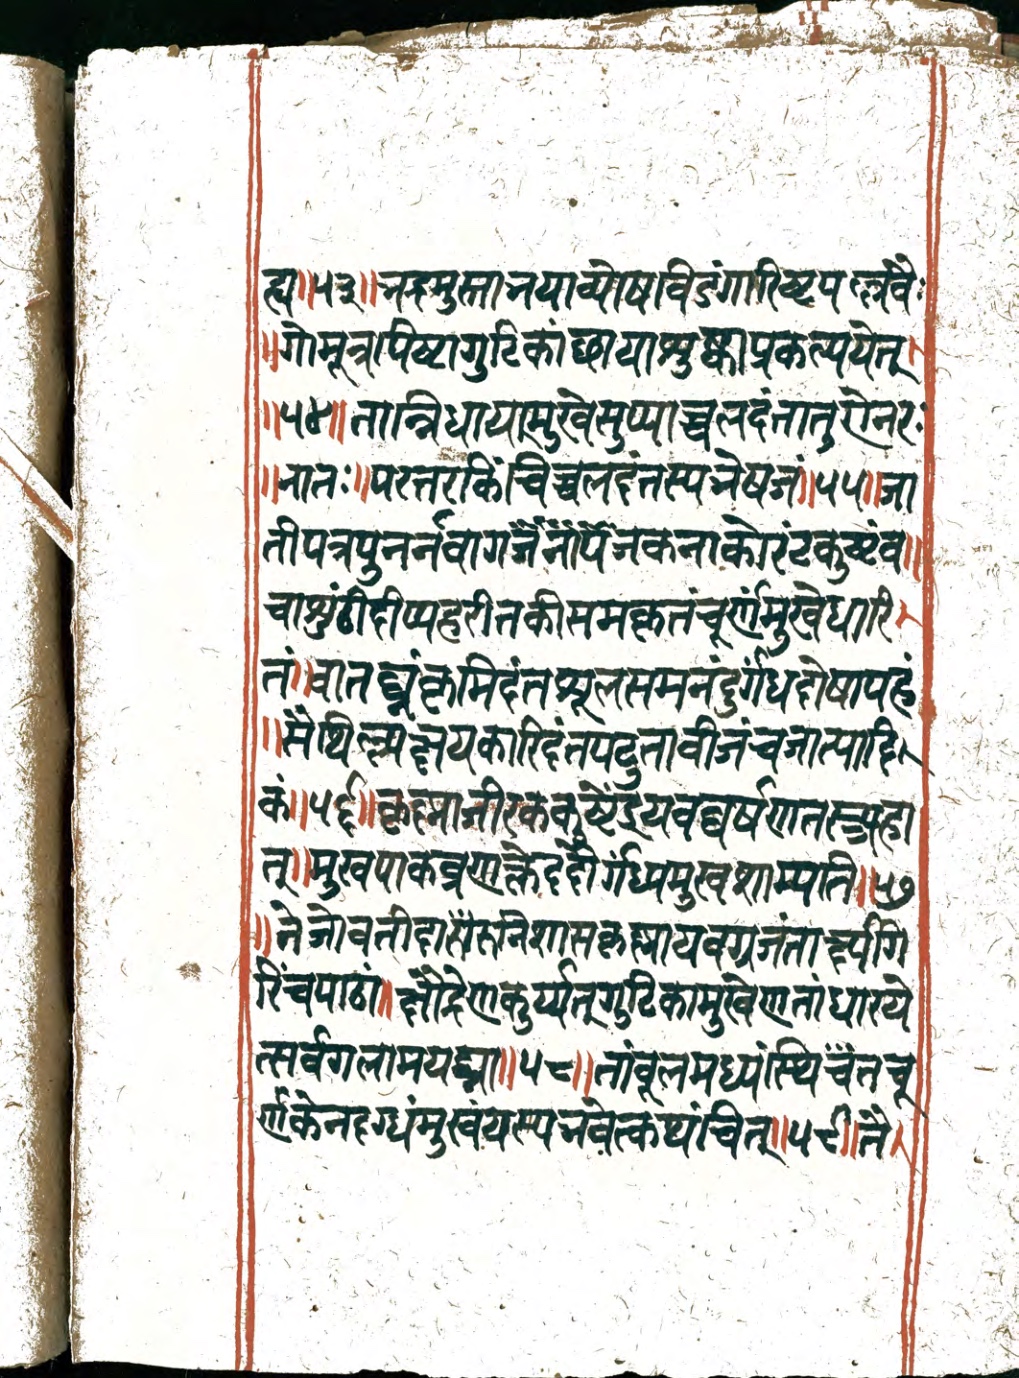 ह्य॥५३॥भद्रमुस्ताभयाव्योषविडंगारिष्टपल्लवैः
॥गोमूत्रापिष्टागुटिकांछायाशुष्काप्रकल्पयेत्
॥५४॥तान्निधायामुखेसुप्याच्चलदंतातुरोनरः
॥नातः॥परतरंकिंचिच्चलदंतस्यभेषजं॥५५॥जा
तीपत्रपुनर्नवागजकनाकोरंटकुष्टंव॥
चाशुंठीदीप्यहरीतकीसमकृतंचूर्णंमुखेधारि
तं॥वातघ्नंकृमिदंतशूलसमनंदुर्गंधदोषापहं
॥सैथिल्यक्षयकारिदंतपटुतावीजंचजात्यादि
कं॥५६॥कृष्नाजीरककुष्टेंद्रयवघर्षणतस्त्र्यहा
त्॥मुखपाकव्रणक्लेददौर्गंध्यमुखशाम्यति॥५७
॥तेजोवतीदासकृष्णायवग्रजंतार्क्ष्यगि
रिंचपाठां॥क्षौद्रेणकुर्य्यत्गुटिकामुखेणतांधारये
त्सर्वगलामयघ्ना॥५८॥तांवूलमध्यंस्थिचैंतचू
र्णकेनदग्धंमुखंयस्यभवेत्कथंचित्॥५९॥तै